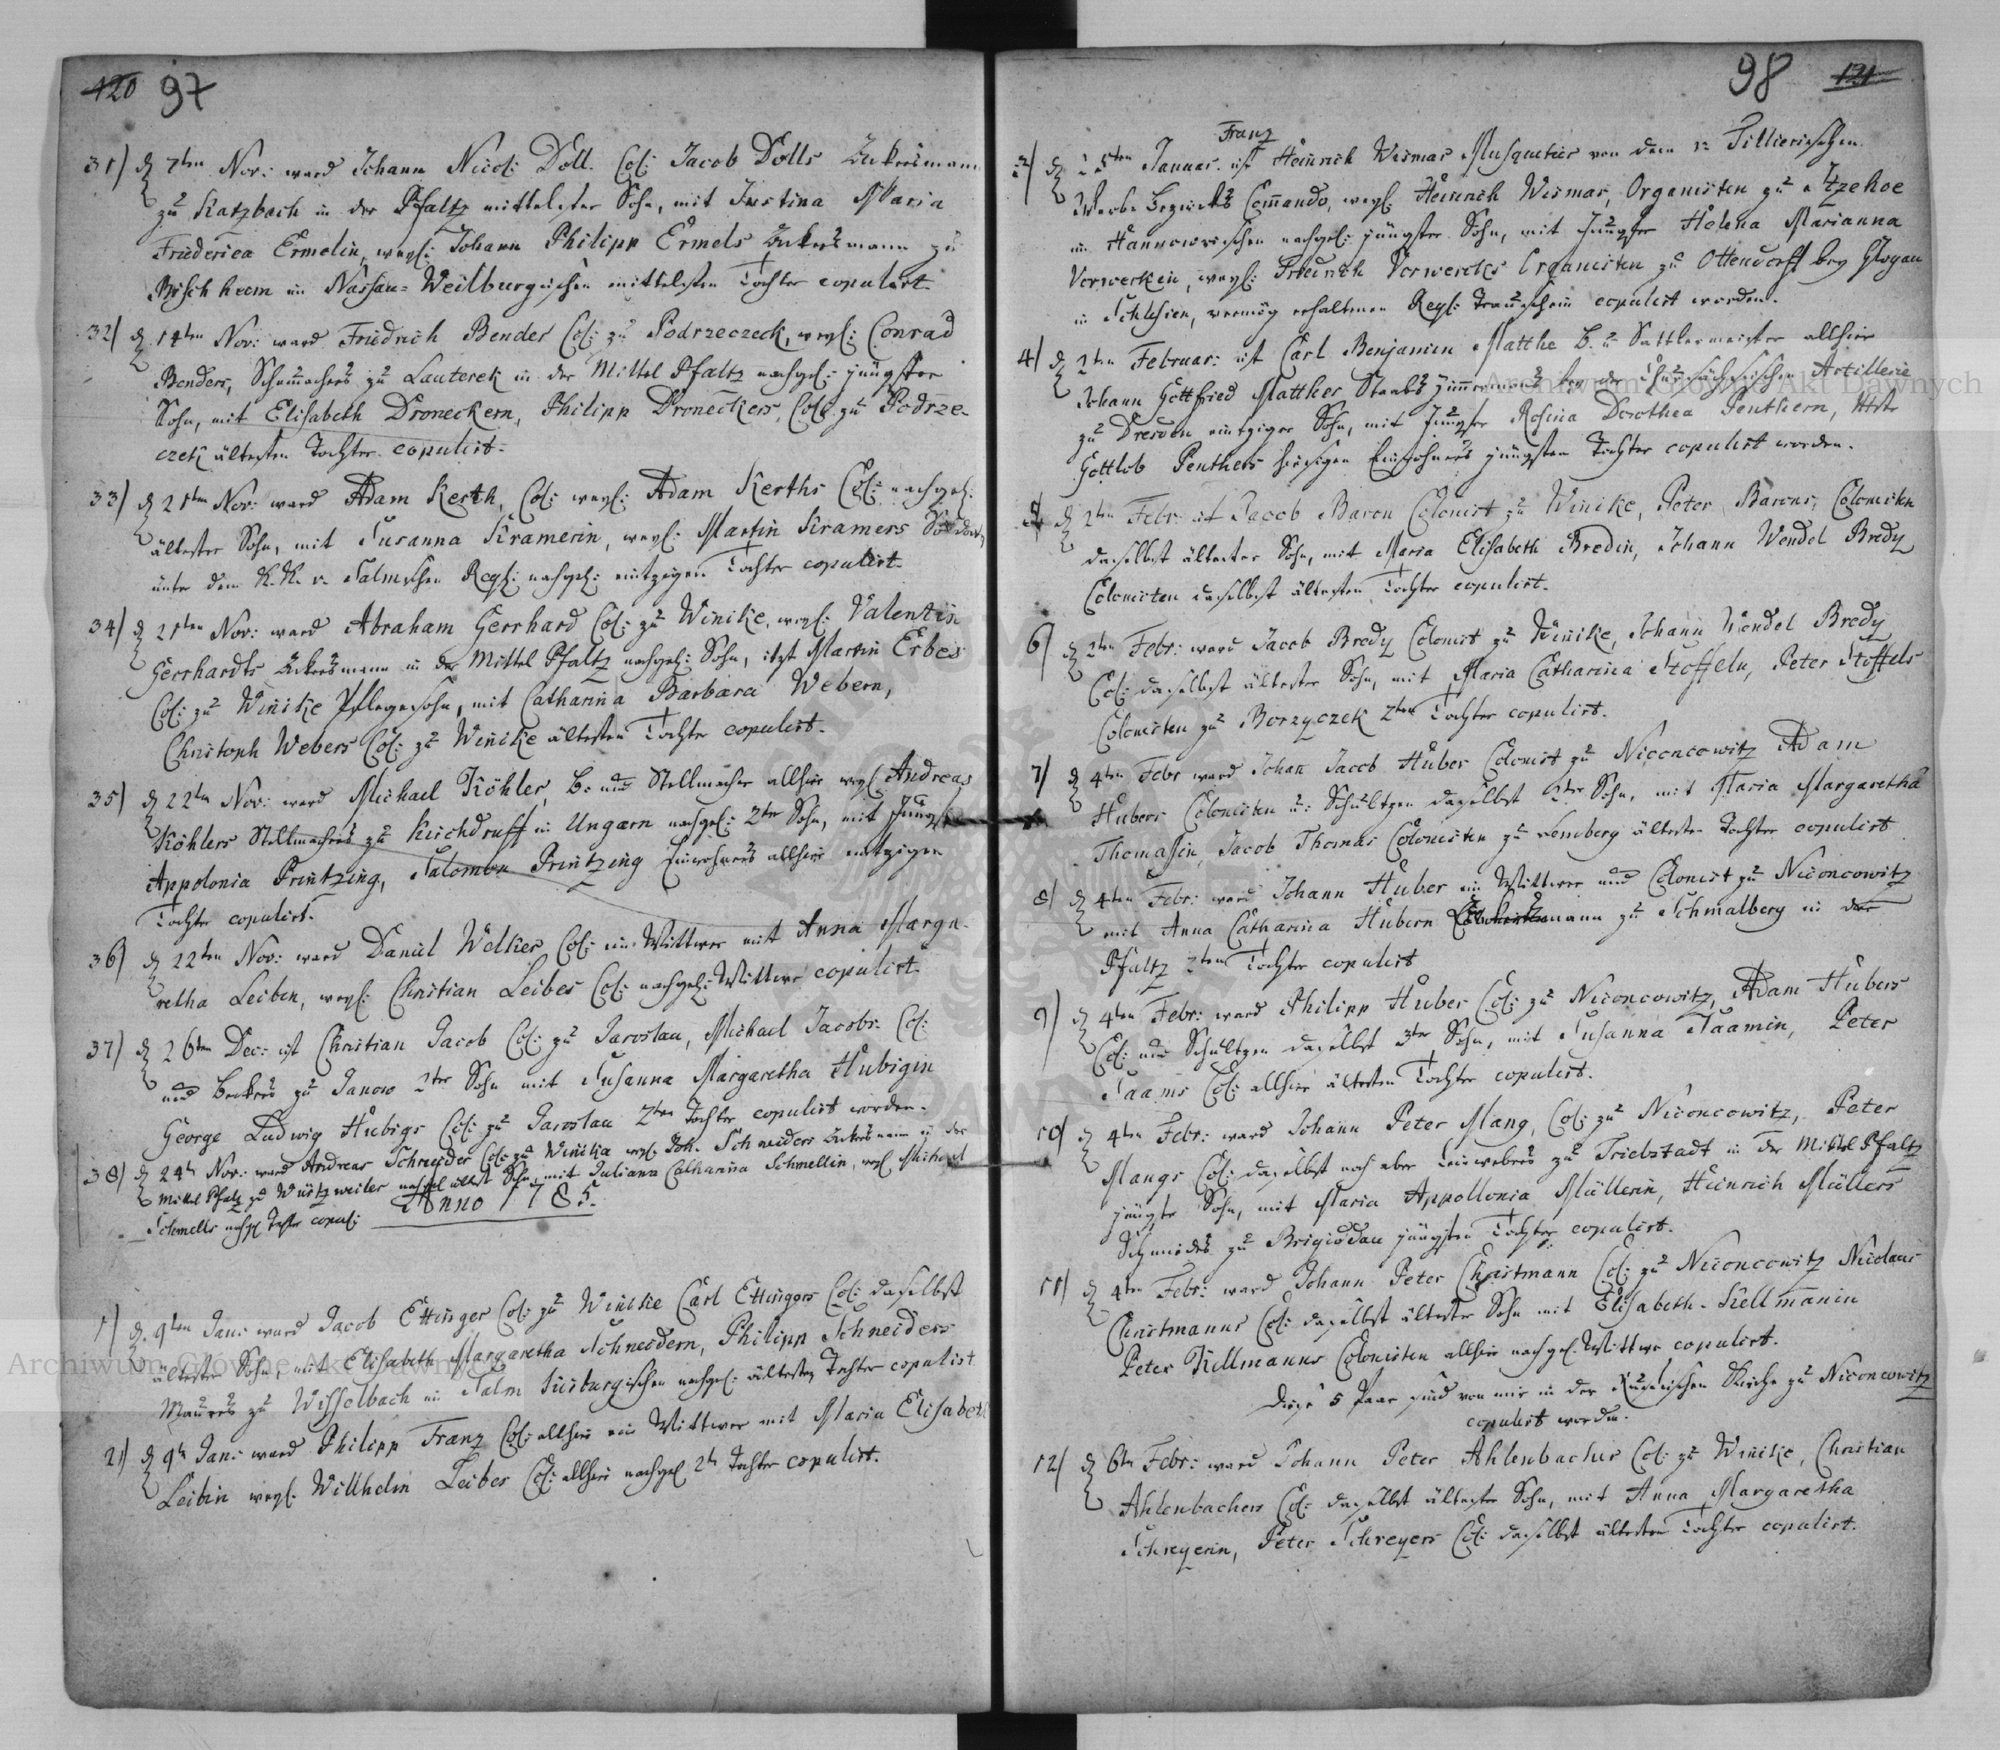 120 97
31) d. 7ten Nov: ward Johann Nicol: Doll. Col: Jacob Dolls Ackersmann
zu Katzbach in der Pfaltz mittelster Sohn, mit Justina Maria
Friderica Ermelin, weyl: Johann Philipp Ermels Ackersmann zu
Bischheim im Nassau-Weilburgischen mittelsten Tochter copulirt.
32) d. 14ten Nov: ward Fridrich Bender Col: zu Podrzeczeck, weyl: Conrad
Benders, Schumachers zu Lauterek in der Mittel Pfaltz nachgel: jüngster
Sohn, mit Elisabeth Droneckern, Philipp Droneckers, Col: zu Podrze-
czek ältesten Tochter copulirt.
33) d. 21ten Nov: ward Adam Kerth, Col: weyl: Adam Kerths Col: nachgel:
ältester Sohn, mit Susanna Kramerin, weyl: Martin Kramers Soldat,
unter dem K.K. v. Salmischen Regt: nachgel: eintzigen Tochter copulirt.
34) d. 21ten Nov: ward Abraham Gerrhard Col: zu Winike, weyl: Valentin
Gerrhardts Ackersmann in der Mittel Pfaltz nachgel: Sohn, itzt Martin Erbes
Col: zu Winike Pflegesohn, mit Catharina Barbara Webern,
Christoph Webers Col: zu Winike ältesten Tochter copulirt.
35) d. 22ten Nov: ward Michael Köhler, B. und Stellmacher allhier weyl. Andreas
Köhlers Stellmachers zu Kirchdruff in Ungarn nachgel: 2ter Sohn, mit Jungfr
Appolonia Printzing, Salomon Printzing Einwohners allhier eintzigen
Tochter copulirt.
36) d. 22ten Nov: ward Daniel Welker Col: ein Wittwer mit Anna Marga-
retha Leiben, weyl. Christian Leibes Col: nachgel: Wittwe copulirt.
37) d. 26ten Dec: ist Christian Jacob Col: zu Jaroslau, Michael Jacobs Col:
und Beckers zu Janow 2ter Sohn mit Susanna Margaretha Hubigin
George Ludwig Hubigs Col: zu Jaroslau 2ten Tochter copulirt worden.
38) d. 24t Nov: ward Andreas Schneider Col: zu Winika weyl. Joh. Schneiders Ackersmann in der
Mittel Pfaltz zu Würtzweiler nachgel ältest Sohn, mit Juliana Catharina Schmellin, weyl Michael
Schmells nachgl Tochter copul:
Anno 1785.
1) d. 9ten Jan: ward Jacob Ettinger Col: zu Winike Carl Ettingers Col: daselbst
ältester Sohn, mit Elisabeth Margaretha Schneidern, Philipp Schneiders
Maurers zu Wisselbach im Salm Kirburgischen nachgel: ältesten Tochter copulirt.
2) d. 9t Jan: ward Philipp Frantz Col: allhier ein Wittwer mit Maria Elisabeth
Leibin weyl. Willhelm Leibes Col: allhier nachgel 2t Tochter copulirt.
98 121
Franz
3) d. 25ten Januar. ist Heinrich Wismar Musquetier von dem Tillierischen
Werbe Bezircks Com̄ando, weyl. Heinrich Wismar, Organisten zu Itzehoe
im Hannowrischen nachgel: jüngster Sohn, mit Jungfer Helena Marianna
Vorwerckin, weyl: Friedrich Vorwercks Organisten zu Ottendorff bey Glogau
in Schlesien, vermög erhaltenen Regt: Trauschein copulirt worden.
4) d. 2ten Februar: ist Carl Benjamin Matthe B. u Sattlermeister allhier
Johann Gottfried Matthes Staabs Zimmermans bey der Chursächsischen Artillerie
zu Dresden eintziger Sohn, mit Jungfer Rosina Dorothea Penthern,
Gottlob Penthers hiesigen Einwohners jüngsten Tochter copulirt worden.
5) d. 2ten Febr: ist Jacob Baron Colonist zu Winike, Peter Barons, Colonisten
daselbst ältester Sohn, mit Maria Elisabeth Bredin, Johann Wendel Bredy
Colonisten daselbst ältesten Tochter copulirt.
6) d. 2ten Febr: ward Jacob Bredy Colonist zu Winike, Johann Wendel Bredy
Col: daselbst ältester Sohn, mit Maria Catharina Stoffeln, Peter Stoffels
Colonisten zu Borzyczek 2ten Tochter copulirt.
7) d. 4ten Febr ward Johan̄ Jacob Huber Colonist zu Niconcowitz Adam
Hubers Colonisten u: Schultzen daselbst 2ter Sohn, mit Maria Margaretha
Thomassin, Jacob Thomas Colonisten zu Lemberg ältesten Tochter copulirt
8) d. 4ten Febr: ward Johann Huber ein Wittwer und Colonist zu Niconcowitz
mit Anna Catharina Hubern mann zu Schmalberg in der
Pfaltz 2ten Tochter copulirt
9) d. 4ten Febr: ward Philipp Huber Col: zu Niconcowitz, Adam Hubers
Col: und Schultzen daselbst 3ter Sohn, mit Susanna Saamin, Peter
Saams Col: allhier ältesten Tochter copulirt.
10) d. 4ten Febr: ward Johann Peter Mang, Col: zu Niconcowitz, Peter
Mangs Col: daselbst noch aber Leinwebers zu Triebstadt in der Mittel Pfaltz
jüngster Sohn, mit Maria Appollonia Müllerin, Heinrich Müllers
Schmiedes zu Brigidau jüngsten Tochter copulirt.
11) d. 4ten Febr: ward Johann Peter Christmann Col: zu Niconcowitz Nicolaus
Christmanns Col: daselbst ältester Sohn mit Elisabeth Kellmanin
Peter Kellmanns Colonisten allhier nachgel. Wittwe copulirt.
Diese 5 Paar sind von mir in der Kirche zu Niconcowitz
copulirt worden.
12) d. 6ten Febr: ward Johann Peter Ahlenbacher Col: zu Winike, Christian
Ahlenbachers Col: daselbst ältester Sohn, mit Anna Margaretha
Schreyerin, Peter Schreyers Col: daselbst ältesten Tochter copulirt.
Archiwum Główne Akt Dawnych
Archiwum Główne Akt Dawnych